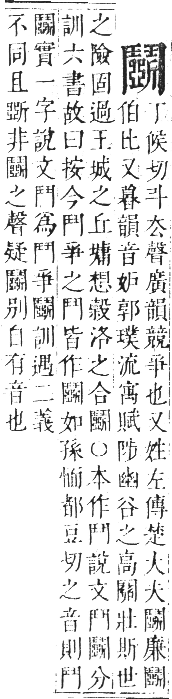 鬭
丁候切斗去聲廣韻競爭也又姓左傳楚大夫鬭廉鬭
伯比又暮韻音妒郭璞流寓賦陟幽谷之高關壯斯世
之險固過王城之丘墉想穀洛之合鬭○本作鬥說文鬥鬭分
訓六書故曰按今鬥爭之鬥皆作鬭如孫愐都豆切之音則鬥
鬭實一字說文鬥爲鬥爭鬭訓遇二義
不同且斲非鬭之聲疑鬭別自有音也